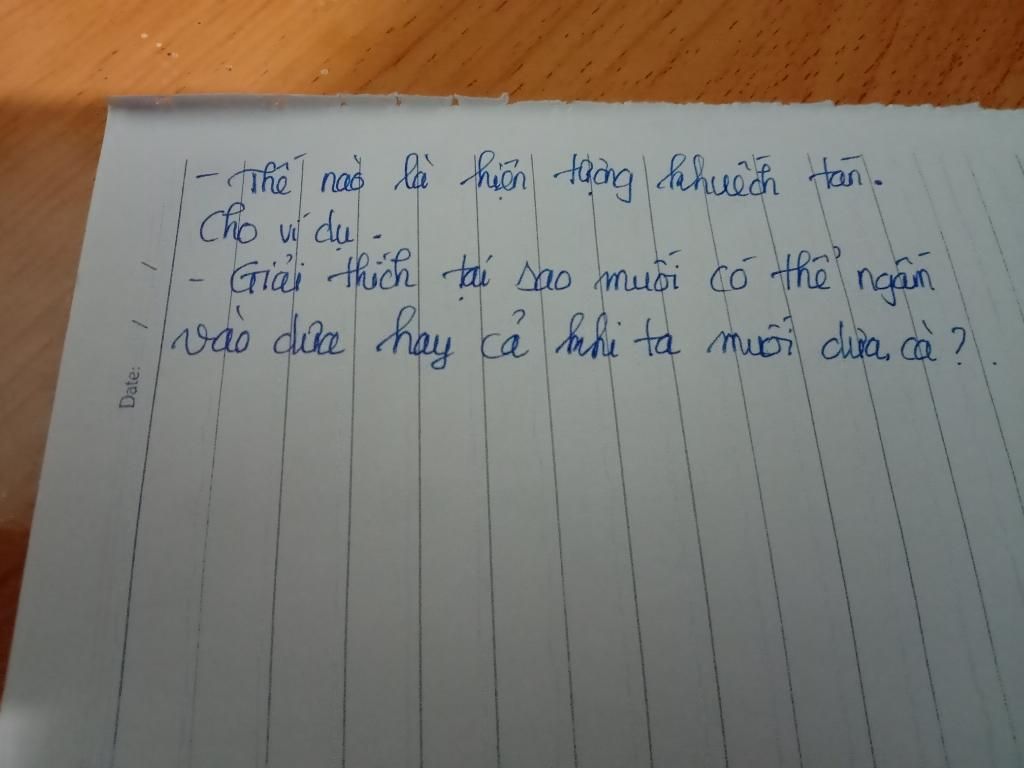 - Thế nào là hiện tượng khuếch tán.
Cho ví dụ.
- Giải thích tại sao muối có thể ngấm
vào dưa hay cà khi ta muối dưa, cà?
Date: / /